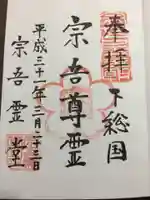 奉拝
下総国
宗吾尊霊
平成三十一年三月二十三日
宗吾霊堂